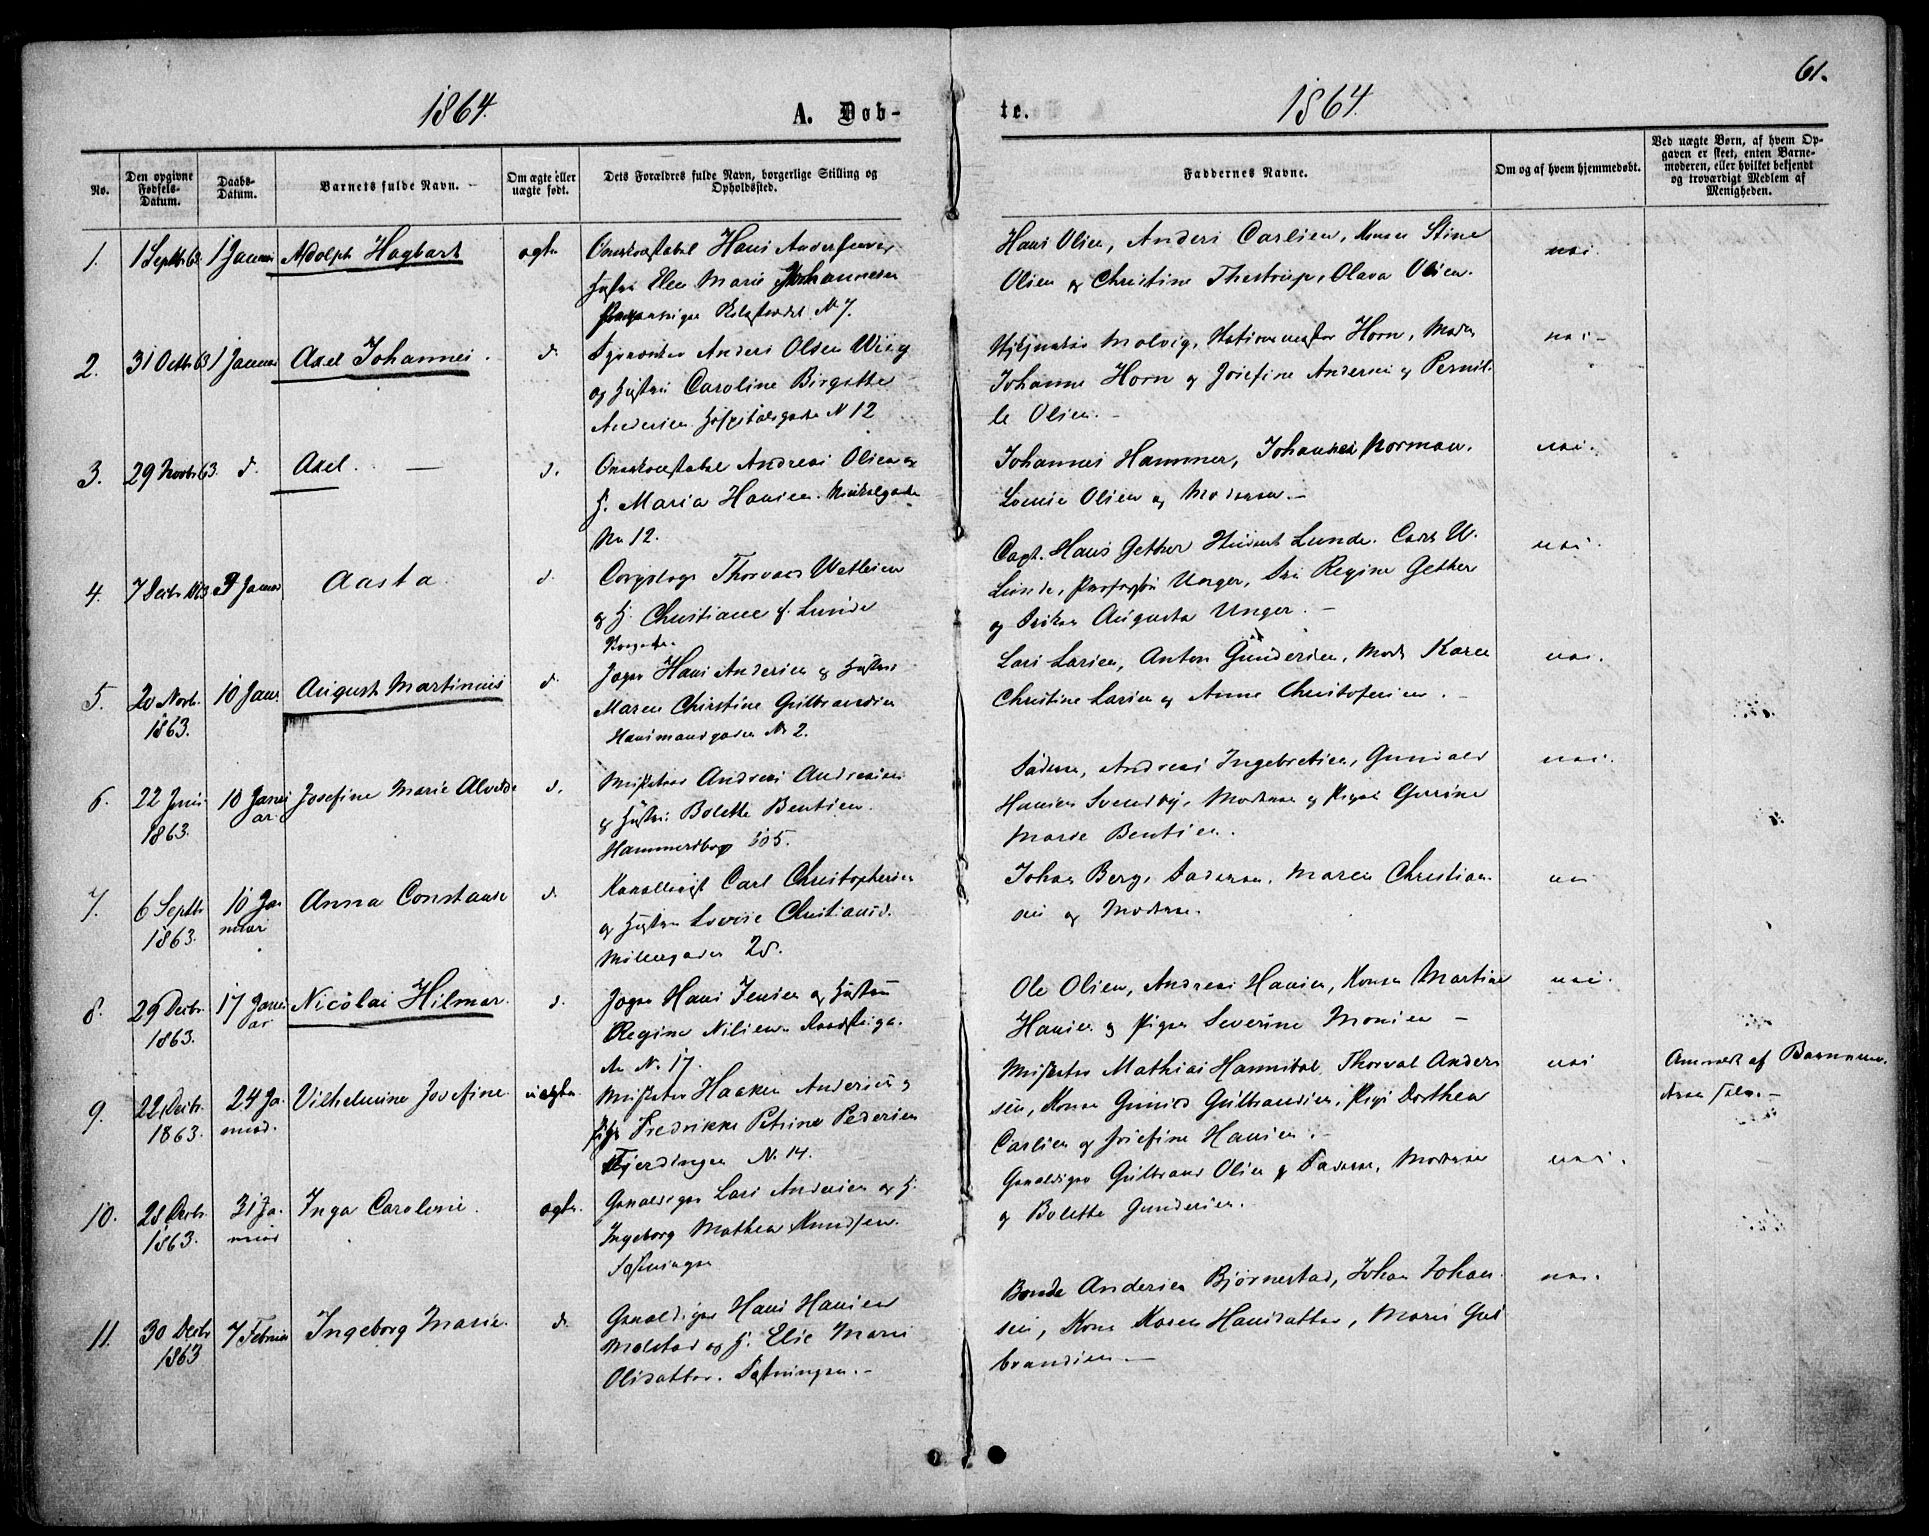 61.
1864. A. Døb-
te. 1864.
No.
Den opgivne Fødsels-Datum.
Daabs-Datum.
Barnets fulde Navn.
Om ægte eller uægte født.
Dets Forældres fulde Navn, borgerlige Stilling og Opholdssted.
Faddernes Navne.
Om og af hvem hjemmedøbt.
Ved uægte Børn, af hvem Opgaven er skeet, enten Barnemoderen, eller hvilket bekjendt og troværdigt Medlem af Menigheden.
1. 1 Septbr 63 1 Januar Adolph Hagbart ægte Hans Andersen
Hustru Elen Marie Johannesen
N 7.
Hans Olsen, Anders Carlsen, Konen Stine
Olsen og Christine Thestrup, Olava Olsen.
nei.
2. 31 Octbr 63 1 Januar Axel Johannes. d. Anders Olsen Wiig
og Hustru Caroline Birgitte
Andersen Hospitalsgaden N 12
Molvig, Horn, Mad.
Johanne Horn og Josefine Andersen og Pernil-
le Olsen.
nei
3. 29 Novbr 63. d. Axel. d. Andreas Olsen og
H. Maria Hansen.
No 12.
Johannes Hammer, Johannes Norman,
Lovise Olsen og Moderen.
nei.
4. 7 Decbr 1863 Januar Aasta. d. Thorvald Wetlesen
og H. Christiane f. Lunde
Capt. Hans Gether Student Lunde. Carl W.
Lunde, Professor Unger, Fru Regine Gether
og Frøken Augusta Unger.
nei.
5. 20 Novb. 1863. 10 Janr. August Martinius d. Hans Andersen og Hustru
Maren Christine Gulbrandsen
Hausmandsgaden No 2.
Lars Larsen, Anton Gundersen, Mad. Karen
Christine Larsen og Anne Christofersen.
nei.
6. 22 Juni 1863. 10 Januar Josefine Marie Alvilde d. Andreas Andreasen
og Hustru: Bolette Bentsen.
Hammersborg 305.
Faderen, Andreas Ingebretsen, Gunvald
Hansen Svendby, Moderen og Pigen Gurine
Marie Bentsen.
nei.
7. 6 Septbr 1863. 10 Januar Anna Constanse d. Carl Christophersen
og Hustru Lovise Christiansd.
Møllergaden 25.
Johan Berg, Faderen, Maren Christian-
sen og Moderen.
8. 29 Decbr. 1863. 17 Januar Nicolai Hilmar. d. Hans Jensen og Hustru
Regine Nilsen
N. 17.
Ole Olsen, Andreas Hansen, Konen Martine
Hansen og Pigen Severine Monsen
nei.
9. 22 Decbr. 1863. 24 Januar. Vilhelmine Josefine uægte Haaken Andersen og
Pige Fredrikke Petrine Pedersen
Fjerdingen N. 14.
Mathias Hannibal, Thorval Ander-
sen, Konen Gunild Gulbrandsen, Pige Dorthea
Carlsen og Josefine Hansen.
nei
Anmeldt af Barnemo-
deren selv.
10. 28 Decbr. 1863. 31 Januar Inga Caroline. ægte. Lars Andersen og H.
Ingeborg Mathea Knudsen.
Fæstningen
Gulbrand Olsen og Faderen, Moderen
og Bolette Gundersen.
nei.
11. 30 Decbr 1863 7 Februar Ingeborg Marie. d. Hans Hansen
Molstad og H. Elise Marie
Olsdatter. Fæstningen.
Bonde Andersen Bjørnestad, Johan Johan-
sen, Kone Karen Hansdatter, Maren Gul-
brandsen.
nei.